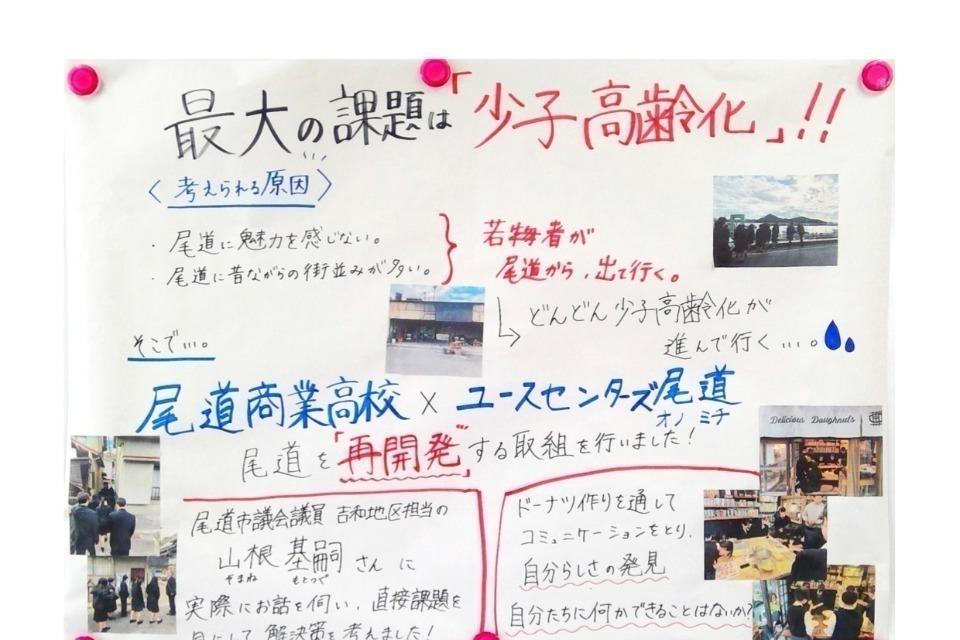 最大の課題は「少子高齢化」!!
〈考えられる原因〉
・尾道に魅力を感じない。
・尾道に昔ながらの街並みが多い。
若者が
尾道から、出て行く。
どんどん少子高齢化が
進んで行く…。
そこで…。
尾道商業高校×ユースセンターズ尾道
オノミチ
尾道を「再開発」する取組を行いました!
尾道市議会議員 吉和地区担当の
山根 基嗣さんに
やまね もとつぐ
実際にお話を伺い、直接課題を
目にして解決策を考えました!
ドーナツ作りを通して
コミュニケーションをとり、
自分らしさの発見
自分たちに何かできることはないか?
Delicious Doughnuts